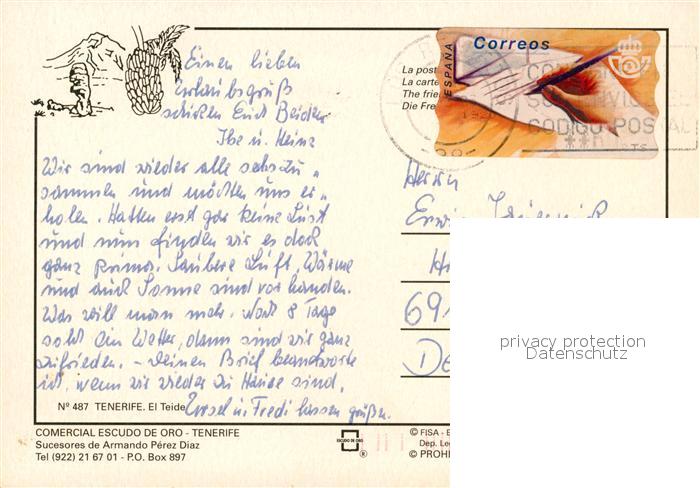 Einen lieben
Urlaubsgruß
schicken Euch Beiden
Ilse u. Heinz
Wir sind wieder alle sechs zu„
sammen und möchten uns er„
holen. Hatten erst gar keine Lust
und nun finden wir es doch
ganz prima. Saubere Luft, Wärme
und auch Sonne sind vorhanden.
Was will man mehr. Noch 8 Tage
solch ein Wetter, dann sind wir ganz
zufrieden. – Deinen Brief beantworte
ich, wenn wir wieder zu Hause sind.
Ursel u. Fredi lassen grüßen.
Nº 487 TENERIFE. El Teide
COMERCIAL ESCUDO DE ORO - TENERIFE
Sucesores de Armando Pérez Diaz
Tel (922) 21 67 01 - P.O. Box 897
ESCUDO DE ORO
®
© FISA - E
Dep. Leg
© PROHI
La post
La carte
The frie
Die Fre
ESPAÑA
Correos
CODIGO POSTAL
Herrn
Erwin
H
691
De
privacy protection
Datenschutz